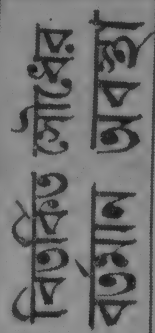 বিতর্কিত সৌধের
বর্তমান অবস্থা